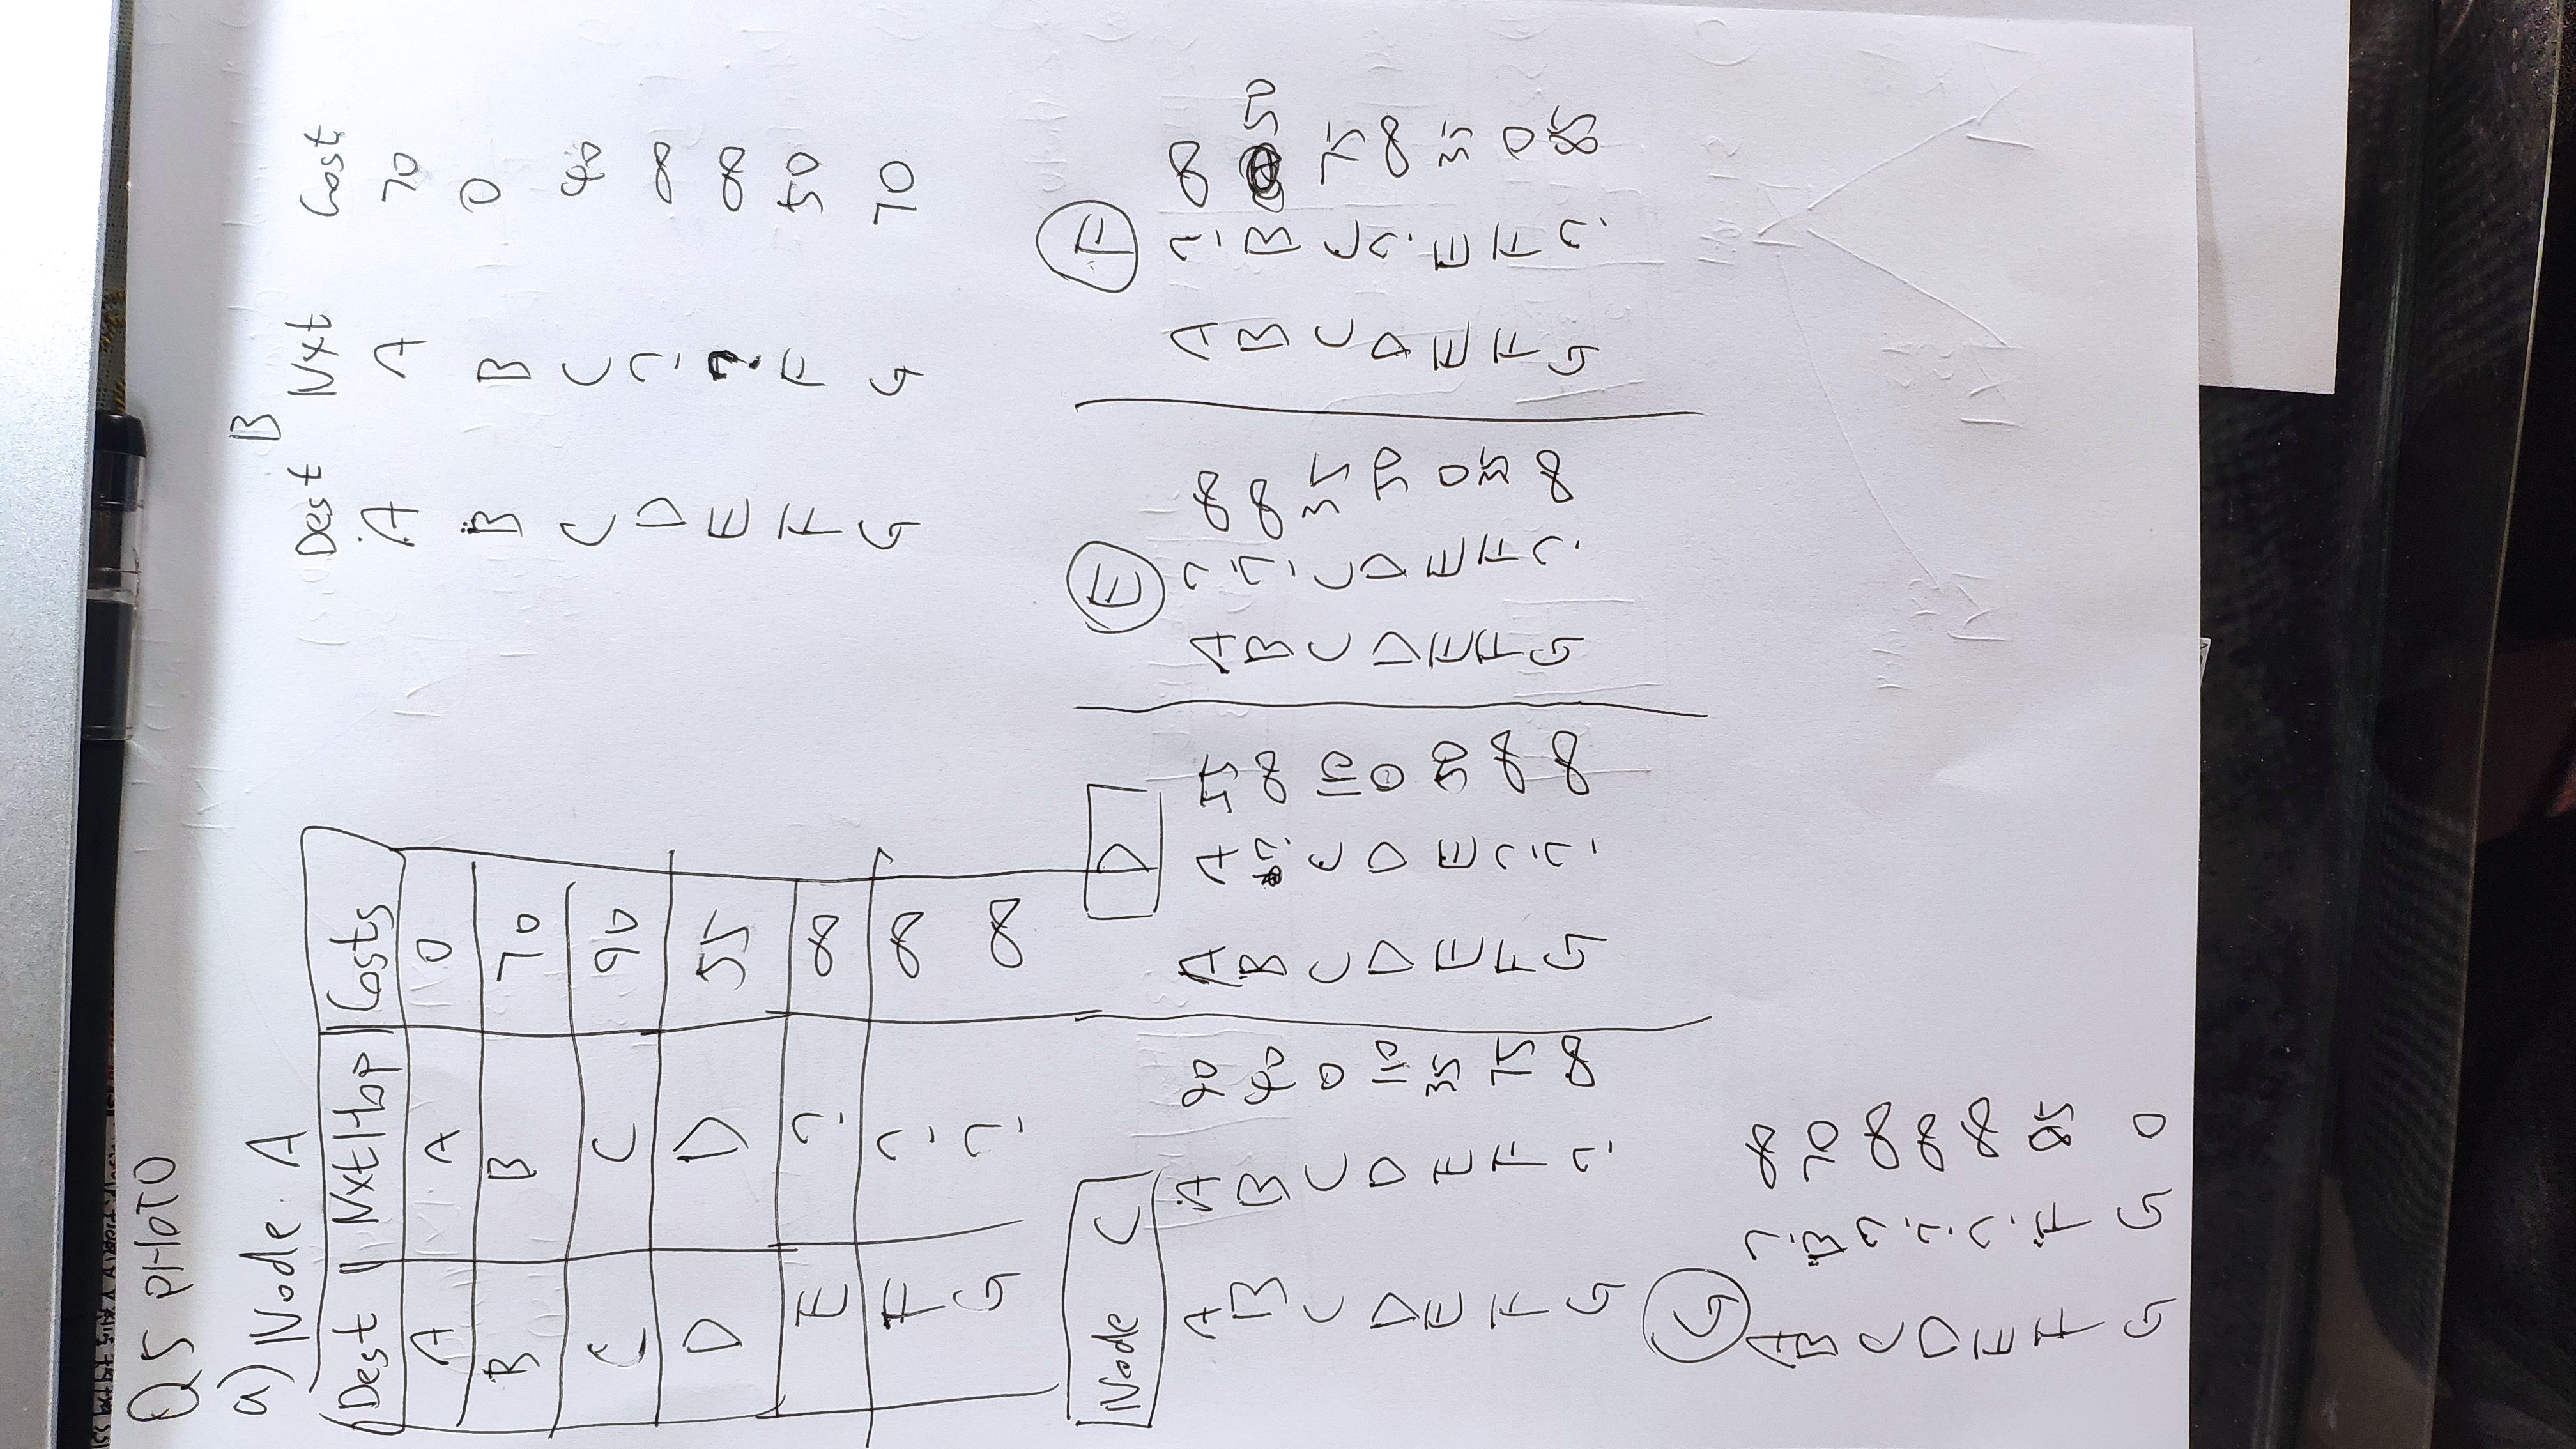 Q5 PHOTO
a) Node A
Dest Nxt Hop Costs
A A 0
B B 70
C C 90
D D 55
E ? ∞
F ? ∞
G ? ∞
B
Dest Nxt Cost
A A 70
B B 0
C C 40
D ? ∞
E ? ∞
F F 50
G G 70
Node C
A A 90
B B 40
C C 0
D D 110
E E 35
F F 75
G ? ∞
D
A A 55
B ? ∞
C C 110
D D 0
E E 50
F ? ∞
G ? ∞
E
A ? ∞
B ? ∞
C C 35
D D 50
E E 0
F F 35
G ? ∞
F
A ? ∞
B B 50
C C 75
D ? ∞
E E 35
F F 0
G ? 85
G
A ? ∞
B B 70
C ? ∞
D ? ∞
E ? ∞
F F 85
G G 0